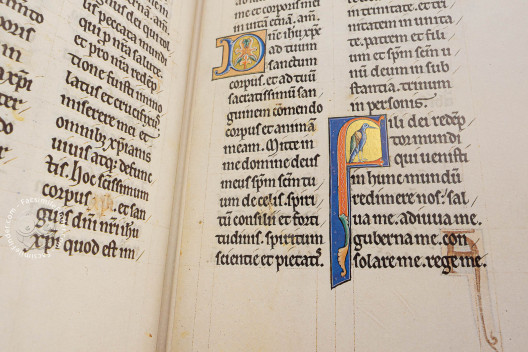 us peccata mundi
qui p nr̄a salute.
et pro nr̄a redēp
tione fuisti immo
latus et crucifixꝰ
miserere mei et
omnibꝫ xp̄ianis
uiuis atqꝫ defunc
tis. hoc scissimum
corpus et san
guis dn̄i nr̄i ihu
xp̄i quod est in
corporis et sanguinis
in uitā etnā. am̄
Dn̄e ihu xpe
ad tuum
sanctum
corpus. et ad tuū
sacratissimū san
guinem cōmendo
corpus et animā
meam. Mitte in
me domine deus
meus spm̄ sem̄ tu
um de celis. spiri
tū consilii et forti
tudinis. spiritum
scientie et pietatꝭ
trinitate. et tri
nitatem in unita
te. patrem et filii
um et spm̄ sem̄ u
nū deum in sub
stantia. trinum
in personis.
Fili dei redēp
tor mundi
qui uenisti
in hunc mundū
redimere nos. sal
ua me. adiuua me.
guberna me. con
solare me. rege me.